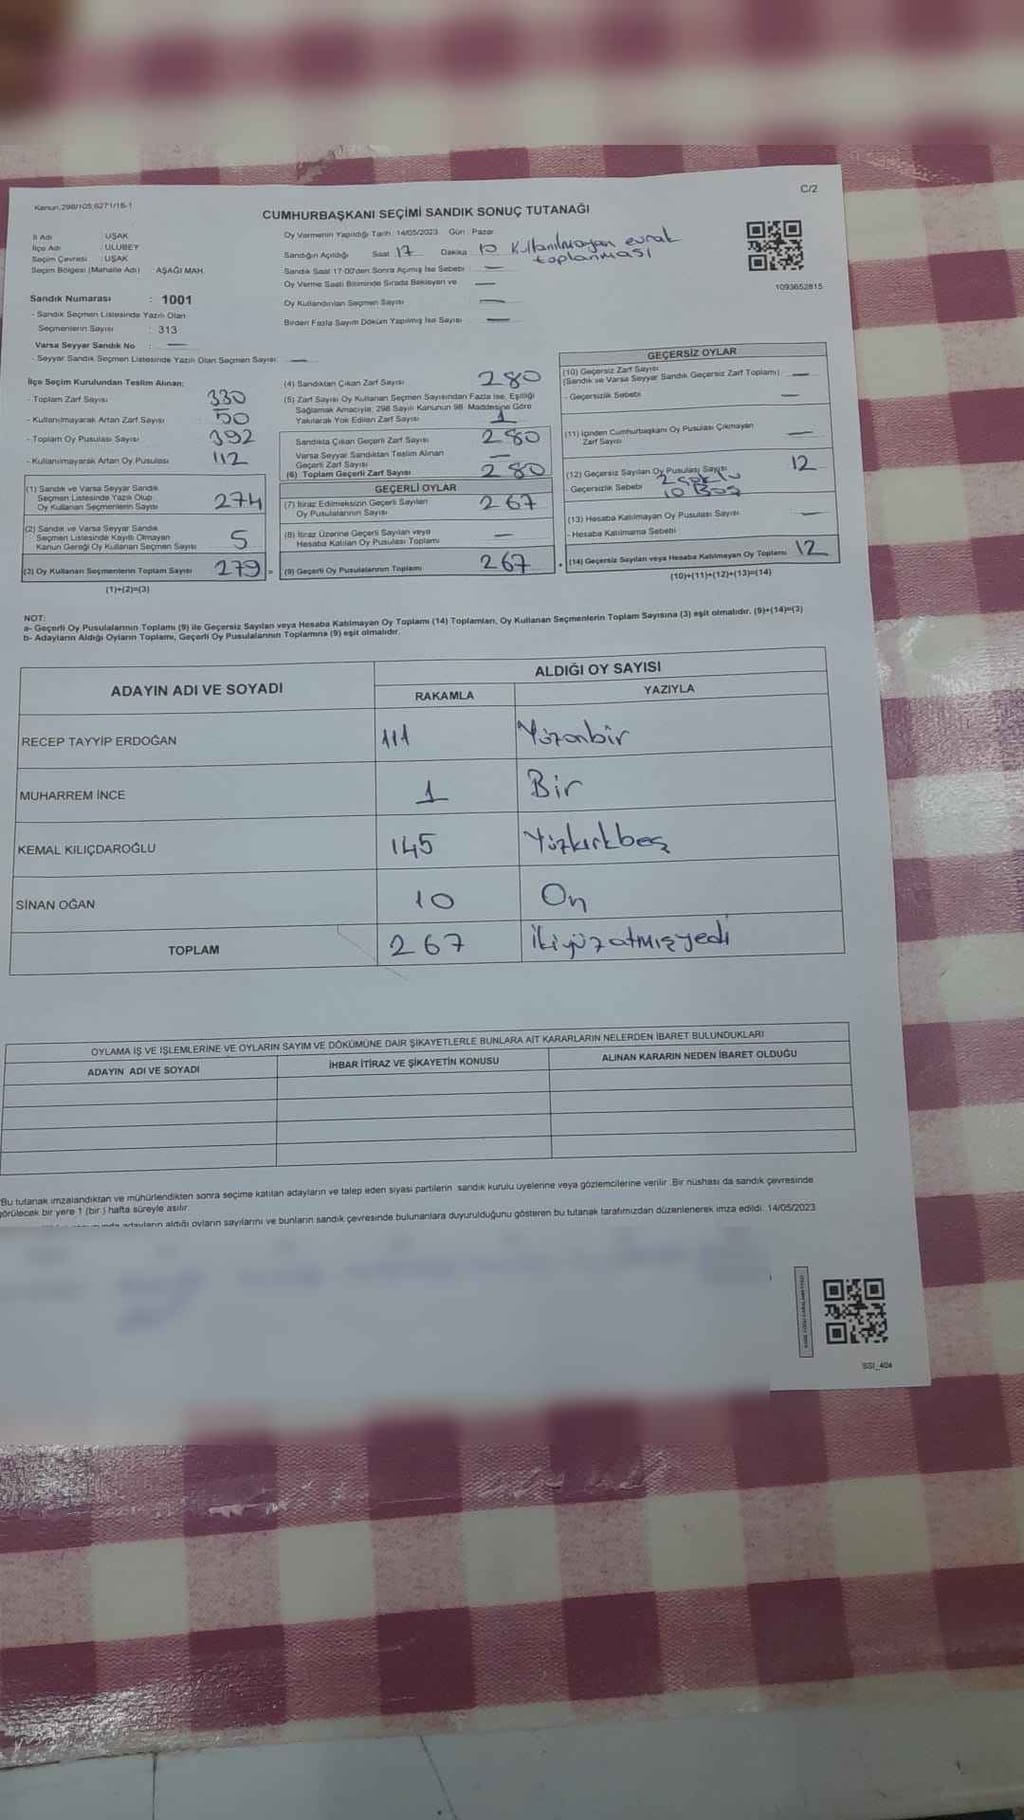 C/2
Kanun.298/105;6271/16-1
CUMHURBAŞKANI SEÇİMİ SANDIK SONUÇ TUTANAĞI
İl Adı : UŞAK
İlçe Adı : ULUBEY
Seçim Çevresi : UŞAK
Seçim Bölgesi (Mahalle Adı) AŞAĞI MAH.
Sandık Numarası : 1001
- Sandık Seçmen Listesinde Yazılı Olan
Seçmenlerin Sayısı : 313
Varsa Seyyar Sandık No : —
- Seyyar Sandık Seçmen Listesinde Yazılı Olan Seçmen Sayısı: —
Oy Vermenin Yapıldığı Tarih: 14/05/2023 Gün: Pazar
Sandığın Açıldığı Saat 17 Dakika 10 Kullanılmayan evrak toplanması
Sandık Saat 17:00'den Sonra Açılmış İse Sebebi —
Oy Verme Saati Bitiminde Sırada Bekleyen ve —
Oy Kullandırılan Seçmen Sayısı —
Birden Fazla Sayım Döküm Yapılmış İse Sayısı —
1093652815
İlçe Seçim Kurulundan Teslim Alınan;
- Toplam Zarf Sayısı 330
- Kullanılmayarak Artan Zarf Sayısı 50
- Toplam Oy Pusulası Sayısı 392
- Kullanılmayarak Artan Oy Pusulası 112
(1) Sandık ve Varsa Seyyar Sandık
Seçmen Listesinde Yazılı Olup
Oy Kullanan Seçmenlerin Sayısı 274
(2) Sandık ve Varsa Seyyar Sandık
Seçmen Listesinde Kayıtlı Olmayan
Kanun Gereği Oy Kullanan Seçmen Sayısı 5
(3) Oy Kullanan Seçmenlerin Toplam Sayısı 279 =
(1)+(2)=(3)
(4) Sandıktan Çıkan Zarf Sayısı 280
(5) Zarf Sayısı Oy Kullanan Seçmen Sayısından Fazla İse, Eşitliği
Sağlamak Amacıyla; 298 Sayılı Kanunun 98. Maddesine Göre
Yakılarak Yok Edilen Zarf Sayısı 1
Sandıkta Çıkan Geçerli Zarf Sayısı 280
Varsa Seyyar Sandıktan Teslim Alınan
Geçerli Zarf Sayısı —
(6) Toplam Geçerli Zarf Sayısı 280
GEÇERLİ OYLAR
(7) İtiraz Edilmeksizin Geçerli Sayılan
Oy Pusulasının Sayısı 267
(8) İtiraz Üzerine Geçerli Sayılan veya
Hesaba Katılan Oy Pusulası Toplamı —
(9) Geçerli Oy Pusulalarının Toplamı 267 +
GEÇERSİZ OYLAR
(10) Geçersiz Zarf Sayısı
(Sandık ve Varsa Seyyar Sandık Geçersiz Zarf Toplamı) —
- Geçersizlik Sebebi —
(11) İçinden Cumhurbaşkanı Oy Pusulası Çıkmayan
Zarf Sayısı —
(12) Geçersiz Sayılan Oy Pusulası Sayısı 12
- Geçersizlik Sebebi 2 çoklu
10 Boş
(13) Hesaba Katılmayan Oy Pusulası Sayısı —
- Hesaba Katılmama Sebebi
(14) Geçersiz Sayılan veya Hesaba Katılmayan Oy Toplamı 12
(10)+(11)+(12)+(13)=(14)
NOT:
a- Geçerli Oy Pusulalarının Toplamı (9) ile Geçersiz Sayılan veya Hesaba Katılmayan Oy Toplamı (14) Toplamları, Oy Kullanan Seçmenlerin Toplam Sayısına (3) eşit olmalıdır. (9)+(14)=(3)
b- Adayların Aldığı Oyların Toplamı, Geçerli Oy Pusulalarının Toplamına (9) eşit olmalıdır.
ADAYIN ADI VE SOYADI ALDIĞI OY SAYISI
RAKAMLA YAZIYLA
RECEP TAYYİP ERDOĞAN 111 Yüzonbir
MUHARREM İNCE 1 Bir
KEMAL KILIÇDAROĞLU 145 Yüzkırkbeş
SİNAN OĞAN 10 On
TOPLAM 267 İkiyüzatmışyedi
OYLAMA İŞ VE İŞLEMLERİNE VE OYLARIN SAYIM VE DÖKÜMÜNE DAİR ŞİKAYETLERLE BUNLARA AİT KARARLARIN NELERDEN İBARET BULUNDUKLARI
ADAYIN ADI VE SOYADI İHBAR İTİRAZ VE ŞİKAYETİN KONUSU ALINAN KARARIN NEDEN İBARET OLDUĞU
*Bu tutanak imzalandıktan ve mühürlendikten sonra seçime katılan adayların ve talep eden siyasi partilerin sandık kurulu üyelerine veya gözlemcilerine verilir. Bir nüshası da sandık çevresinde
görülecek bir yere 1 (bir ) hafta süreyle asılır.
adayların aldığı oyların sayılarını ve bunların sandık çevresinde bulunanlara duyurulduğunu gösteren bu tutanak tarafımızdan düzenlenerek imza edildi. 14/05/2023
SSI_404